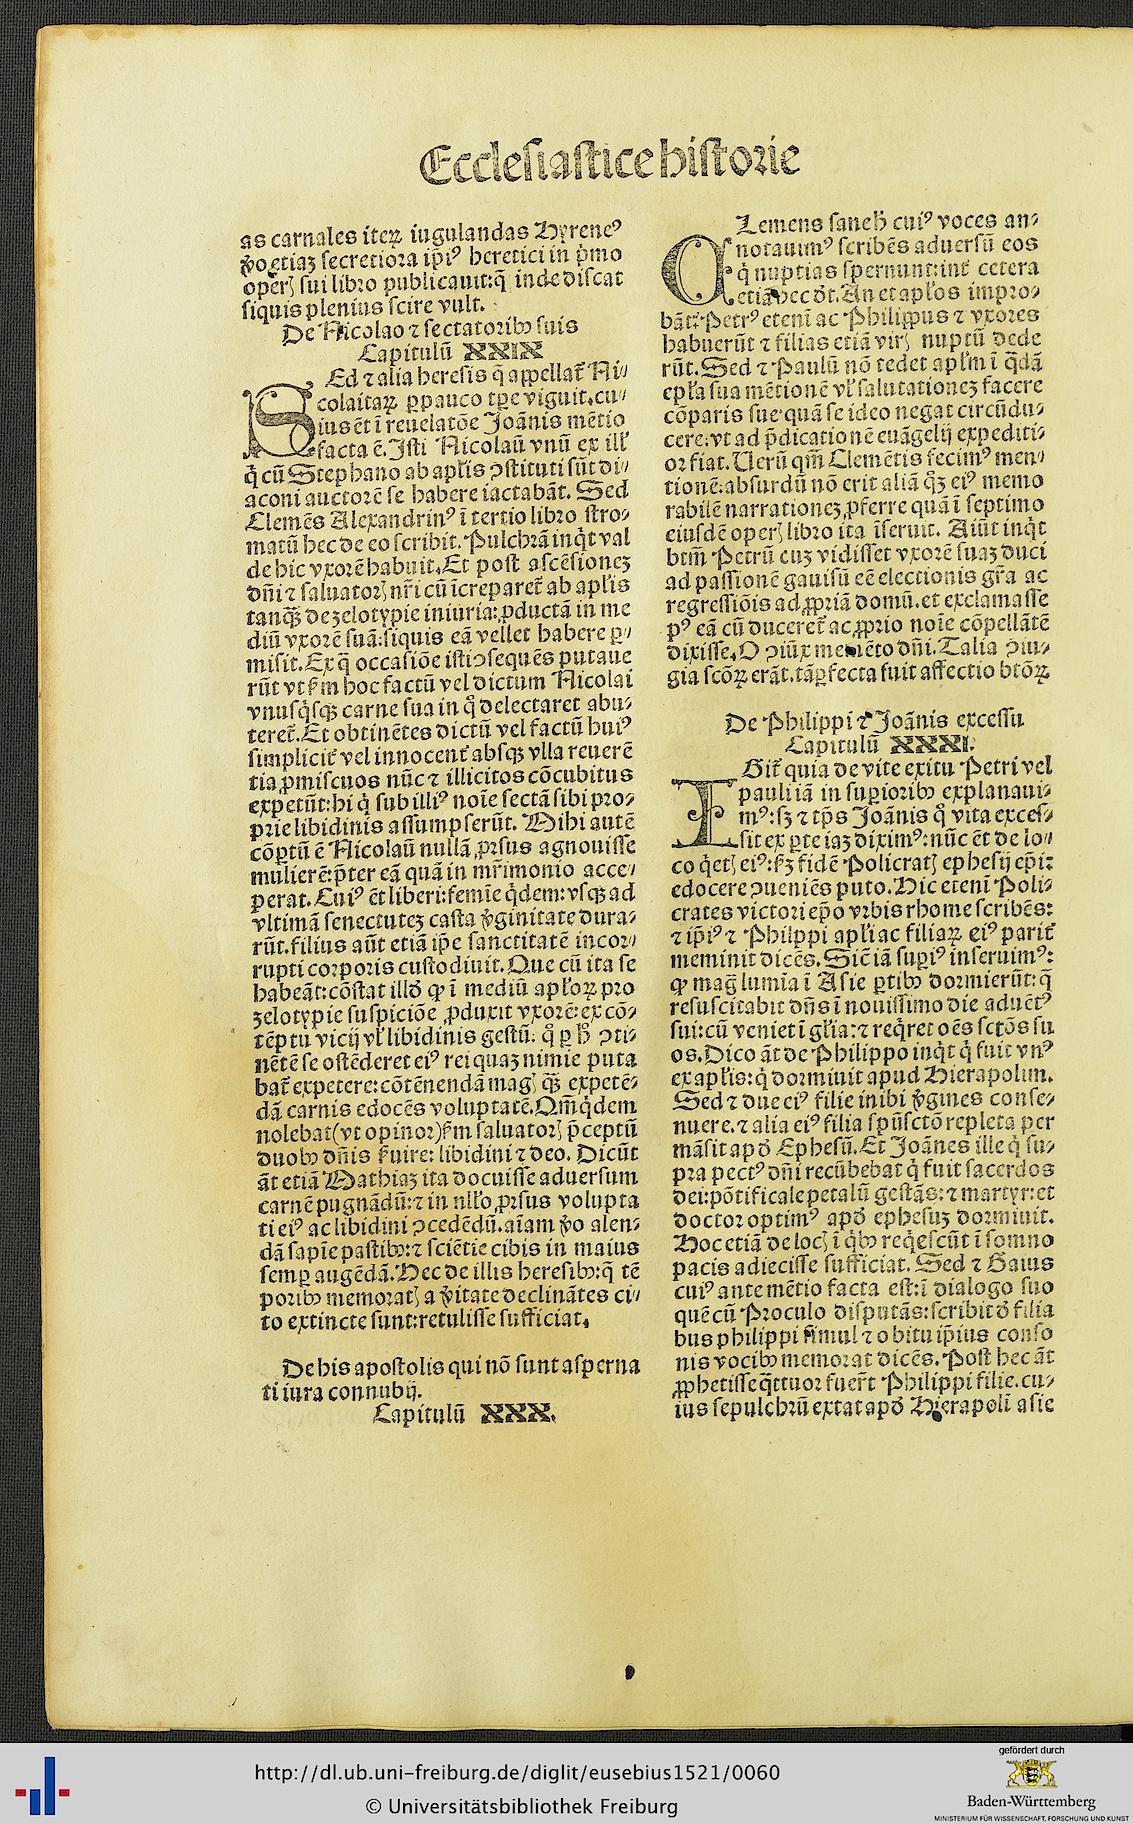 Ecclesiastice historie
as carnales iteꝝ iugulandas Hyreneꝰ
ꝟo etiaʒ secretiora ip̄iꝰ heretici in p̍mo
oper̄ꝭ sui libro publicauit: q̄ inde discat
siquis plenius scire vult.
De Nicolao ⁊ sectatoribꝰ suis
Capitulū XXIX
SEd ⁊ alia heresis q̄ appellat᷑ Ni⸗
colaitaꝝ ꝑpauco tꝑe viguit. cu⸗
ius ēt ī reuelatōe Joānis mētio
facta ē. Isti Nicolaū vnū ex ill'
q̍ cū Stephano ab apl'is ꝯstituti sūt di⸗
aconi auctorē se habere iactabāt. Sed
Clemēs Alexandrinꝰ ī tertio libro stro⸗
matū hec de eo scribit. Pulchrā inq̍t val
de hic vxorē habuit. Et post ascēsioneʒ
dn̄i ⁊ saluatorꝭ nr̄i cū īcreparet᷑ ab apl'is
tanqꝫ̄ de zelotypie iniuria: ꝓductā in me
diū vxorē suā: siquis eā vellet habere ꝑ⸗
misit. Ex q̄ occasiōe isti ꝯsequēs putaue
rūt vt ẜm hoc factū vel dictum Nicolai
vnusq̍sqꝫ carne sua in qͦ delectaret abu⸗
teret᷑. Et obtinētes dictū vel factū huiꝰ
simplicit᷑ vel innocent᷑ absqꝫ vlla reuerē
tia ꝓmiscuos nūc ⁊ illicitos cōcubitus
expetūt: hi q̍ sub illiꝰ noīe sectā sibi pro⸗
prie libidinis assumpserūt. Mihi autē
cōꝑtū ē Nicolaū nullā ꝓrsus agnouisse
mulierē: p̄ter eā quā in mr̄imonio acce⸗
perat. Cuiꝰ ēt liberi: femīe q̍dem: vsqꝫ ad
vltimā senectuteʒ casta ꝟginitate dura⸗
rūt. filius aūt etiā ip̄e sanctitatē incor⸗
rupti corporis custodiuit. Que cū ita se
habeāt: cōstat illđ ꝙ ī mediū apl'oꝝ pro
zelotypie suspiciōe ꝓduxit vxorē: ex cō⸗
tēptu vicij vl' libidinis gestū: qͦ ꝑ hͦ ꝯti⸗
nētē se ostēderet eiꝰ rei quaʒ nimie puta
bat᷑ expetere: cōtēnendā magꝭ qꝫ̄ expetē⸗
dā carnis edocēs voluptatē. Qm̄ q̍dem
nolebat (vt opinor) ẜm saluatorꝭ p̄ceptū
duobꝰ dn̄is ẜuire: libidini ⁊ deo. Dicūt
āt etiā Mathiaʒ ita docuisse aduersum
carnē pugnādū: ⁊ in nll'o ꝓrsus volupta
ti eiꝰ ac libidini ꝯcedēdū. aīam ꝟo alen⸗
dā sapīe pastibꝰ: ⁊ sciētie cibis in maius
semꝑ augēdā. Hec de illis heresibꝰ: q̄ tē
poribꝰ memoratꝭ a ꝟitate declinātes ci⸗
to extincte sunt: retulisse sufficiat.
De his apostolis qui nō sunt asperna
ti iura connubij.
Capitulū XXX.
CLemens sane hͦ cuiꝰ voces an⸗
notauimꝰ scribēs aduersū eos
q̍ nuptias spernunt: int᷑ cetera
etiā hec đt. An et apl'os impro⸗
bāt? Petrꝰ etenī ac Philippus ⁊ vxores
habuerūt ⁊ filias etiā virꝭ nuptū dede
rūt. Sed ⁊ Paulū nō tedet apl'm ī q̄dā
epl'a sua mētionē vl' salutationeʒ facere
cōparis sue quā se ideo negat circūdu⸗
cere: vt ad p̄dicationē euāgelij expediti⸗
or fiat. Verū qm̄ Clemētis fecimꝰ men⸗
tionē: absurdū nō erit aliā qͦʒ eiꝰ memo
rabilē narrationeʒ ꝓferre quā ī septimo
eiusdē operꝭ libro ita īseruit. Aiūt inq̍t
btm̄ Petrū cuʒ vidisset vxorē suaʒ duci
ad passionē gauisū eē electionis gr̄a ac
regressiōis ad ꝓpriā domū. et exclamasse
pꝰ eā cū duceret᷑ ac ꝓprio noīe cōpellātē
dixisse. O ꝯiūx memēto dn̄i. Talia ꝯiu⸗
gia scōꝝ erāt. tā ꝑfecta fuit affectio btōꝝ
De Philippi ⁊ Joānis excessu
Capitulū XXXI.
IGit᷑ quia de vite exitu Petri vel
pauli iā in suꝑioribꝰ explanaui⸗
mꝰ: sʒ ⁊ tp̄s Joānis qͦ vita exces⸗
sit ex ꝑte iaʒ diximꝰ: nūc ēt de lo⸗
co q̍etꝭ eiꝰ: ẜʒ fidē Policratꝭ ephesij ep̄i:
edocere ꝯueniēs puto. Hic etenī Poli⸗
crates victori ep̄o vrbis rhome scribēs:
⁊ ip̄iꝰ ⁊ Philppi apl'i ac filiaꝝ eiꝰ parit᷑
meminit dicēs. Sic ēiā suꝑiꝰ inseruimꝰ:
ꝙ maḡ lumīa ī Asie ꝑtibꝰ dormierūt: q̄
resuscitabit dn̄s ī nouissimo die aduētꝰ
sui: cū veniet ī gl'ia: ⁊ req̍ret oēs sctōs su
os. Dico āt de Philippo inq̍t q̍ fuit vnꝰ
ex apl'is: q̍ dormiuit apud Hierapolim.
Sed ⁊ due eiꝰ filie inibi ꝟgines conse⸗
nuere. ⁊ alia eiꝰ filia spū sctō repleta per
māsit apđ Ephesū. Et Joānes ille q̍ su⸗
pra pectꝰ dn̄i recūbebat q̍ fuit sacerdos
dei: pōtificale petalū gestās: ⁊ martyr: et
doctor optimꝰ apđ ephesuʒ dormiuit.
Hoc etiā de locꝭ ī q̍bꝰ req̍escūt ī somno
pacis adiecisse sufficiat. Sed ⁊ Gaius
cuiꝰ ante mētio facta est: ī dialogo suo
quē cū Proculo disputās: scribit đ filia
bus philippi simul ⁊ obitu ip̄ius conso
nis vocibꝰ memorat dicēs. Post hec āt
ꝓphetisse q̄ttuor fuer̄t Philippi filie. cu⸗
ius sepulchrū extat apđ Hierapolī asie
http://dl.ub.uni-freiburg.de/diglit/eusebius1521/0060
© Universitätsbibliothek Freiburg
gefördert durch
Baden-Württemberg
MINISTERIUM FÜR WISSENSCHAFT, FORSCHUNG UND KUNST